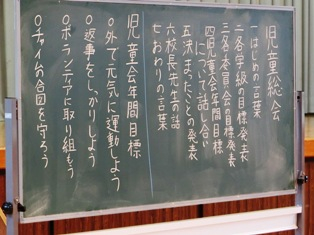 児童総会
一はじめの言葉
二各学級の目標発表
三各委員会の目標発表
四児童会年間目標
について話し合い
五決まったことの発表
六校長先生の話
七おわりの言葉
児童会年間目標
○外で元気に運動しよう
○返事をしっかりしよう
○ボランティアに取り組もう
○チャイムの合図を守ろう